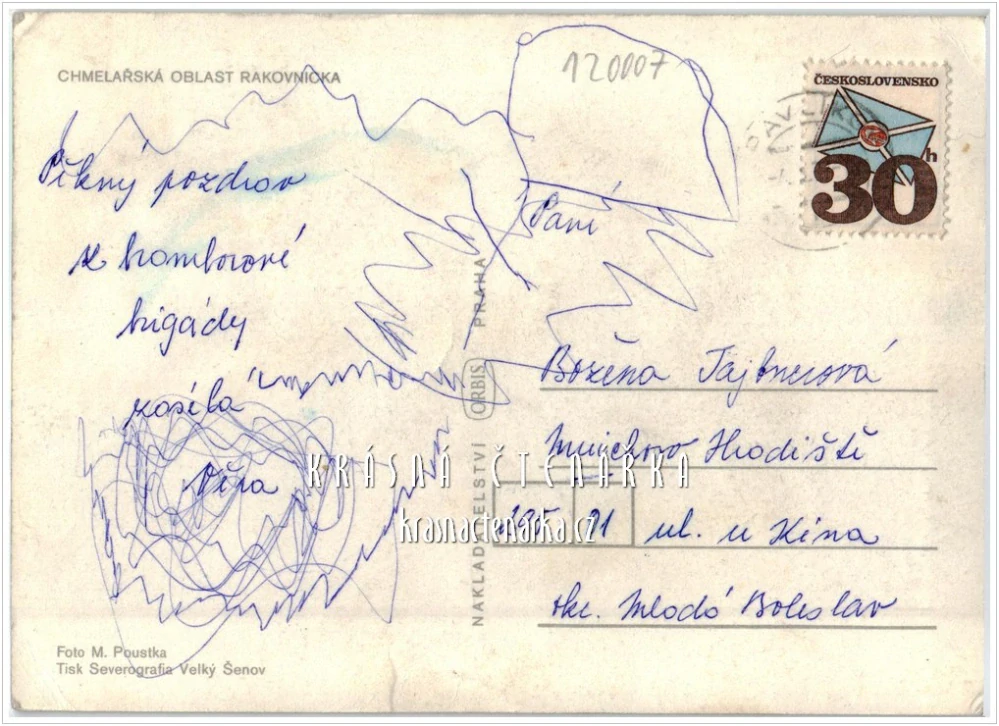 CHMELAŘSKÁ OBLAST RAKOVNICKA
120007
ČESKOSLOVENSKO
30h
Pěkný pozdrav
z bramborové
brigády
zasílá
Věra
Paní
Božena Tajbnerová
Mnichovo Hradiště
21 ul. u Kina
okc. Mladá Boleslav
NAKLADATELSTVÍ ORBIS PRAHA
KRÁSNÁ ČTENÁŘKA
krasnactenarka.cz
Foto M. Poustka
Tisk Severografia Velký Šenov